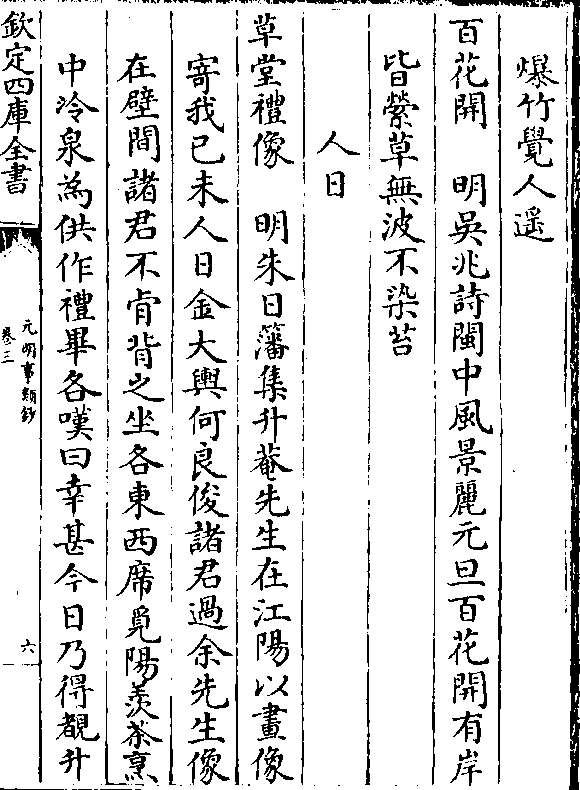 爆竹覺人遥
百花開　明吳兆詩閩中風景麗元旦百花開有岸
皆縈草無波不染苔
人日
草堂禮像　明朱日藩集升菴先生在江陽以畫像
寄我己未人日金大輿何良俊諸君過余先生像
在壁間諸君不肯背之坐各東西席覓陽羨茶烹
中泠泉為供作禮畢各嘆曰幸甚今日乃得覩升
欽定四庫全書
元明事類鈔
卷三
六